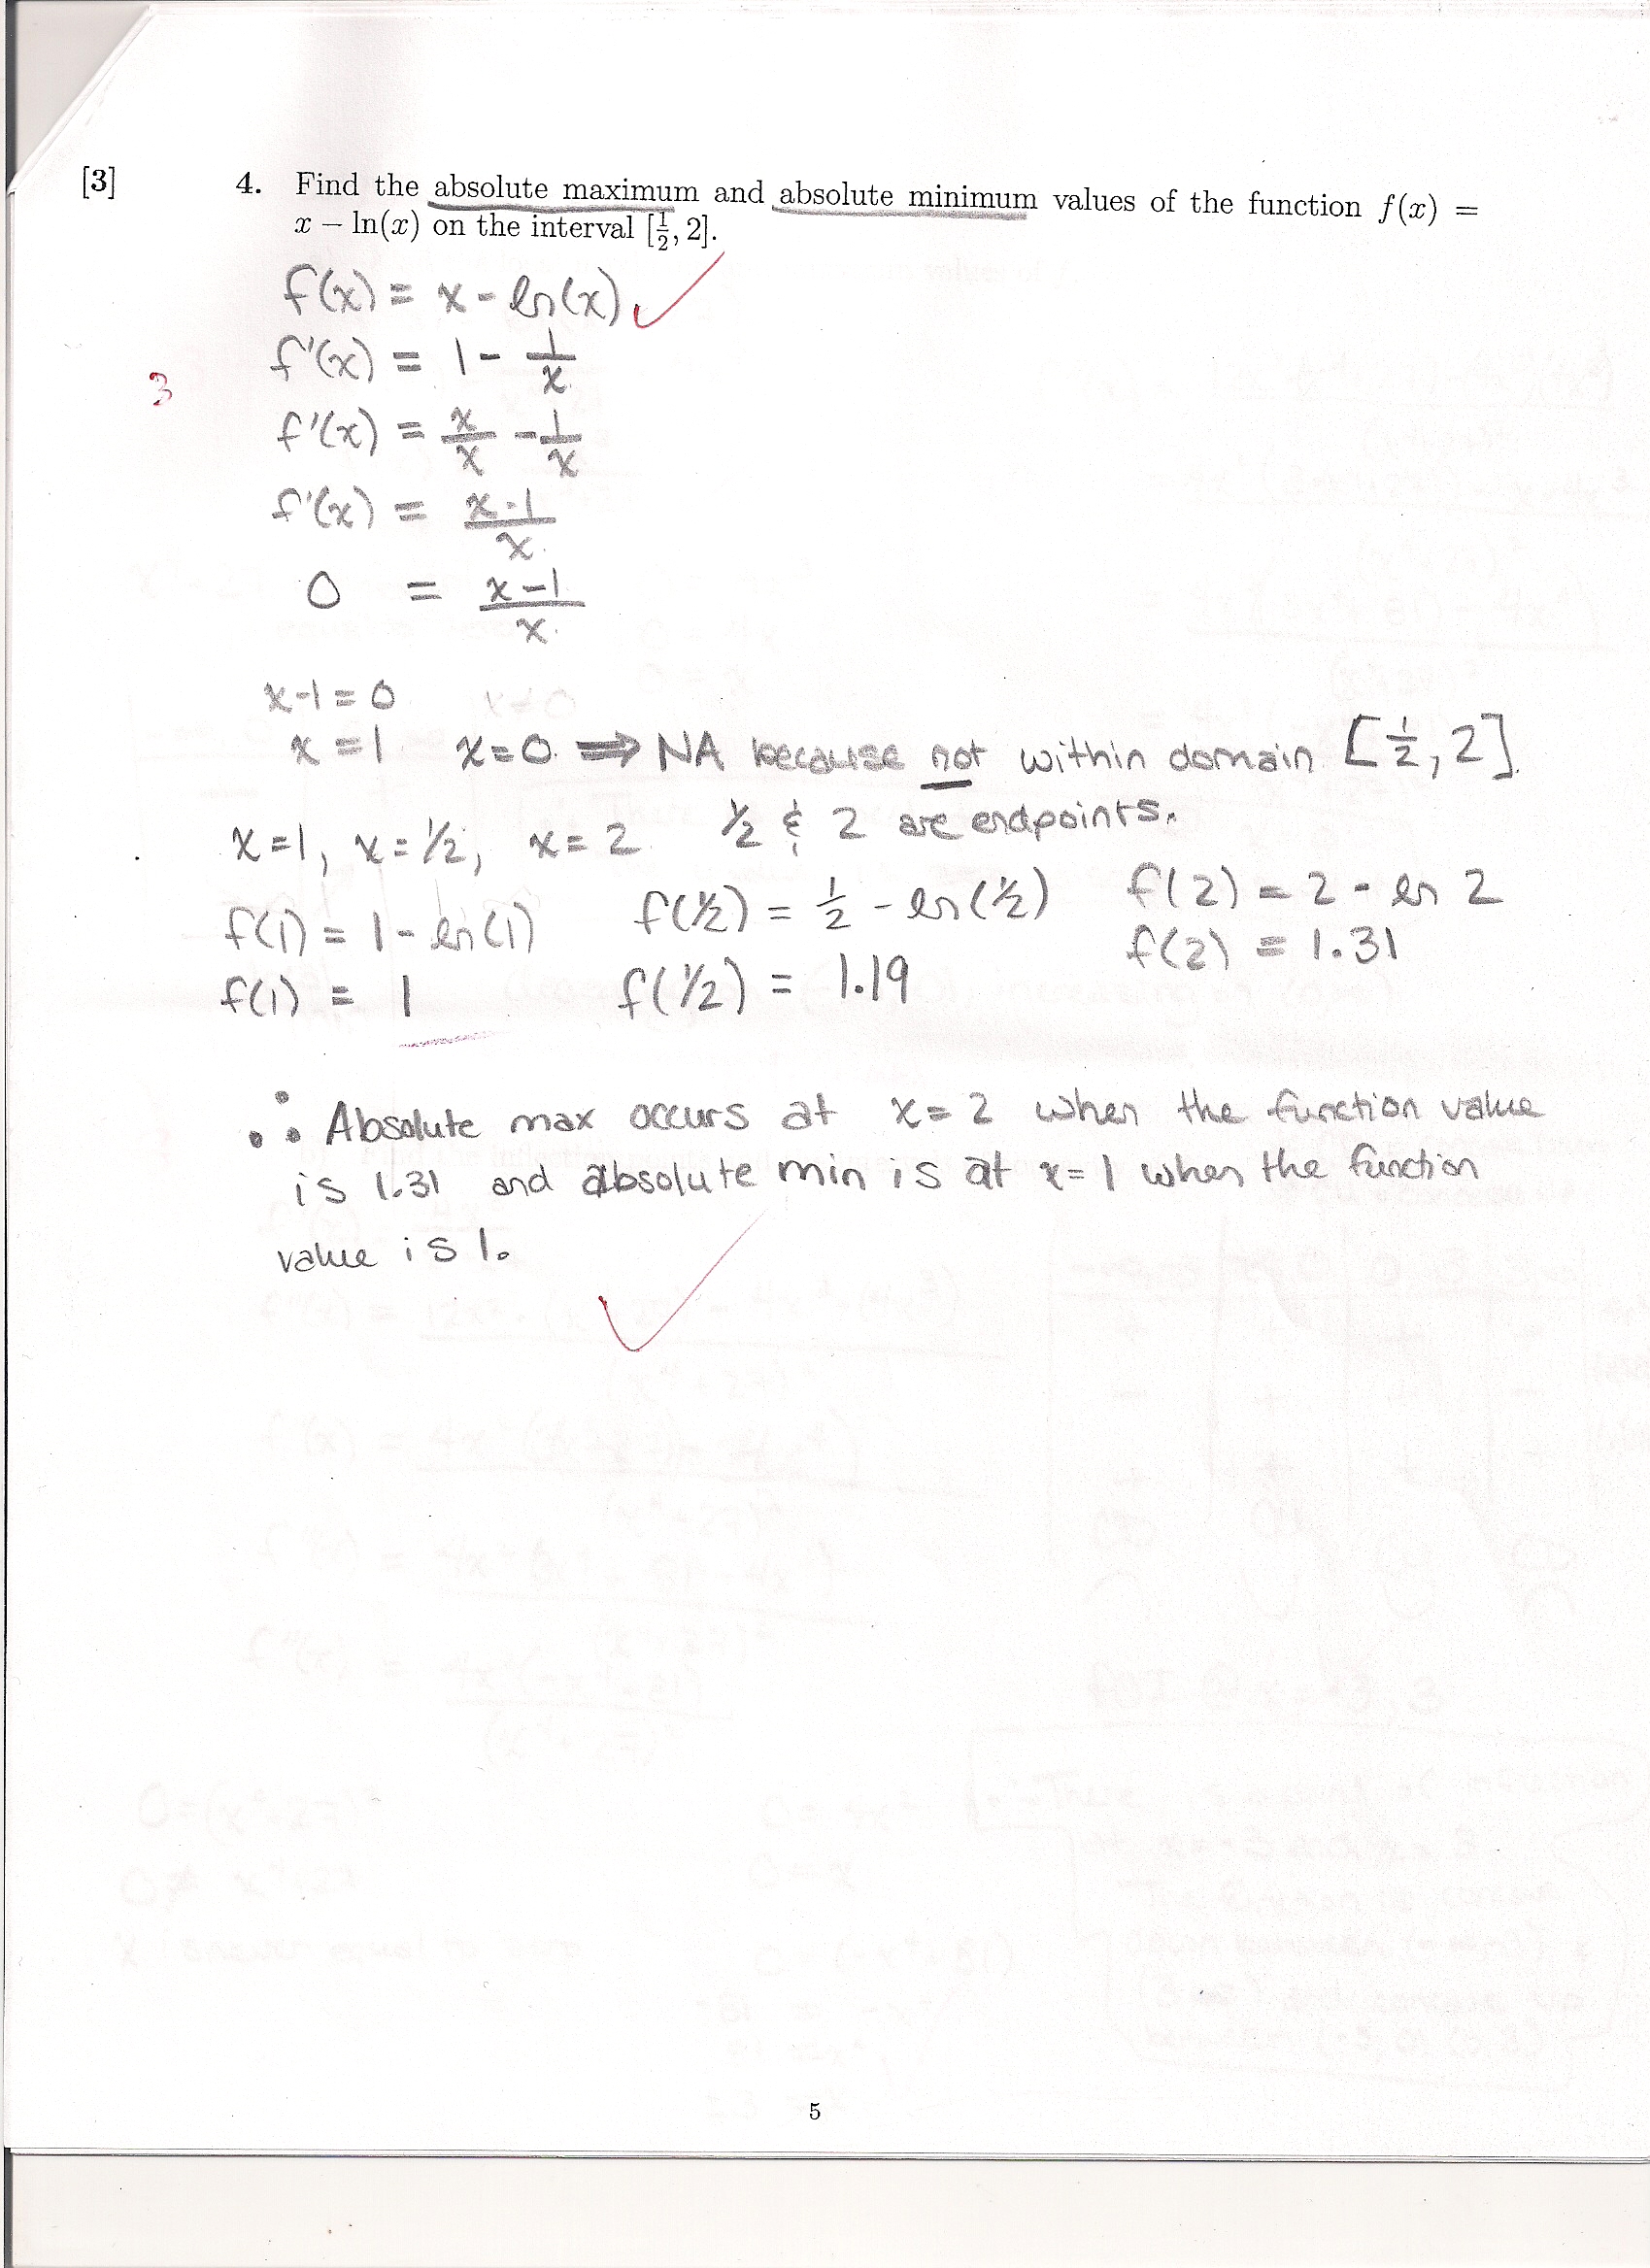 [3] 4. Find the absolute maximum and absolute minimum values of the function f(x) =
x − ln(x) on the interval [1/2, 2].
f(x) = x - ln(x) ✓
f'(x) = 1 - 1/x
3
f'(x) = x/x - 1/x
f'(x) = x-1/x
0 = x-1/x
x-1=0 x=0
x=1 x=0 ⇒ NA because not within domain [1/2, 2]
x=1, x=1/2, x=2 1/2 & 2 are endpoints.
f(1) = 1 - ln(1) f(1/2) = 1/2 - ln(1/2) f(2) = 2 - ln 2
f(1) = 1 f(1/2) = 1.19 f(2) = 1.31
∴ Absolute max occurs at x=2 when the function value
is 1.31 and absolute min is at x=1 when the function
value is 1.
✓
5